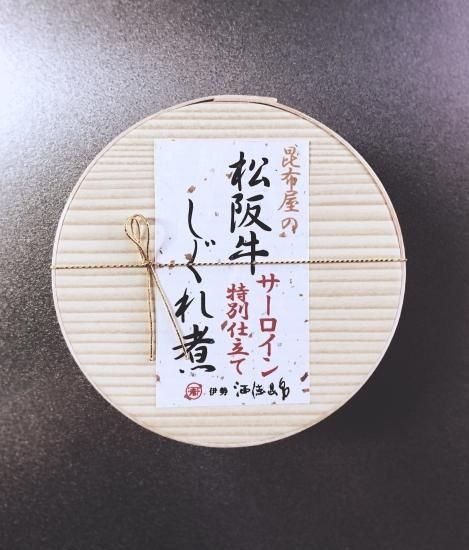 昆布屋の
松阪牛
しぐれ煮
サーロイン
特別仕立て
伊勢 酒徳昆布